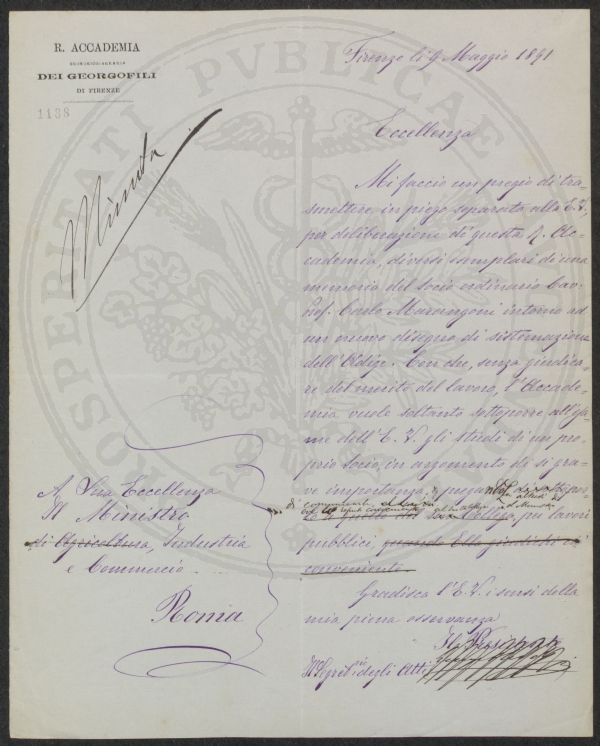 R. ACCADEMIA
ECONOMICO-AGRARIA
DEI GEORGOFILI
DI FIRENZE
1138
Minuta
Firenze li 9 Maggio 1891
Eccellenza
Mi faccio un pregio di tra-
smettere in piego separato alla E.V.,
per deliberazione di questa R. Ac-
cademia, diversi esemplari di una
memoria del socio ordinario Cav.
Prof. Carlo Marangoni intorno ad
un nuovo disegno di sistemazione
dell'Adige. Con che, senza giudica-
re del merito del lavoro, l'Accade-
mia vuole soltanto sottoporre all'esa-
me dell'E. V. gli studi di un pro-
prio socio, in argomento di sì gra-
ve importanza,
di
pei lavori
pubblici, quando Ella giudichi ciò
conveniente.
Gradisca l'E.V. i sensi della
mia piena osservanza
Il
Il Segret.rio degli Atti
A Sua Eccellenza
Il Ministro
di Agricoltura, Industria
e Commercio
Roma
PROSPERITATI PUBLICAE